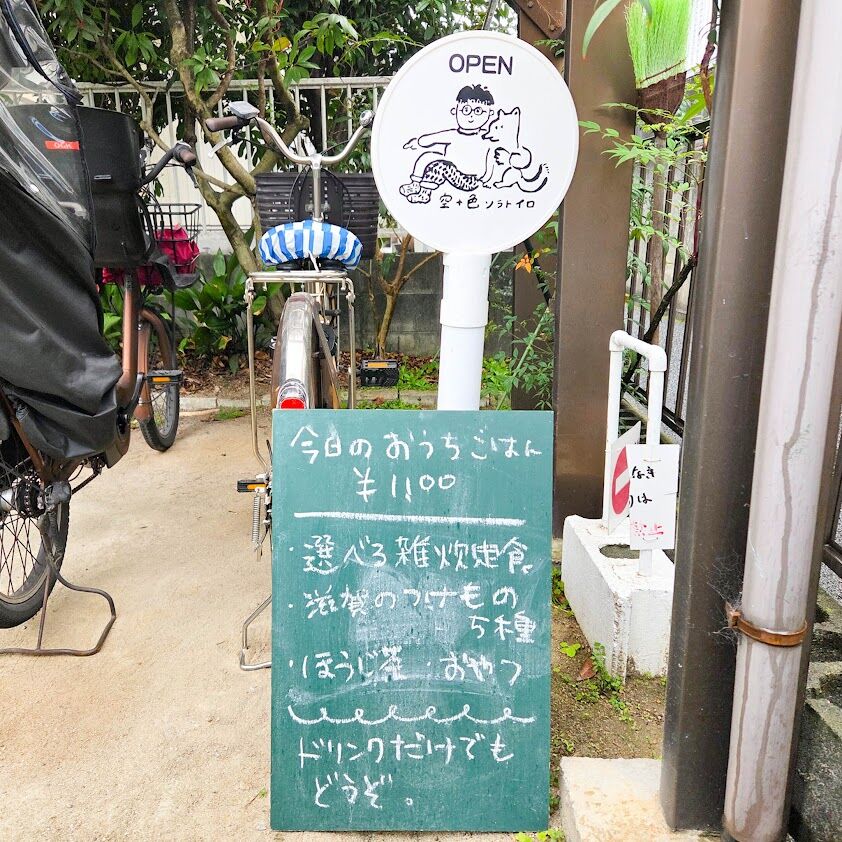 OPEN
空+色 ソラトイロ
今日のおうちごはん
¥1,100
・選べる雑炊定食
・滋賀のつけもの
5種
・ほうじ茶 ・おやつ
ドリンクだけでも
どうぞ。
OGK